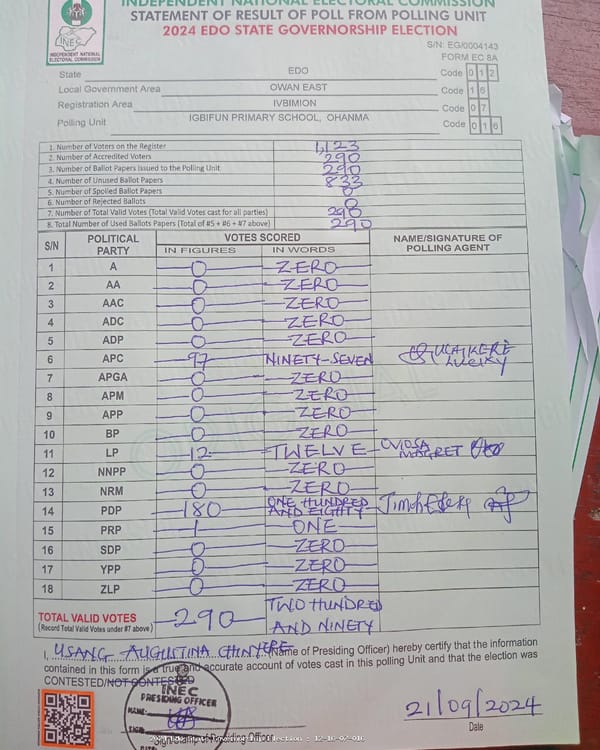 INDEPENDENT NATIONAL ELECTORAL COMMISSION
STATEMENT OF RESULT OF POLL FROM POLLING UNIT
2024 EDO STATE GOVERNORSHIP ELECTION
INEC
INDEPENDENT NATIONAL ELECTORAL COMMISSION
S/N: EG/0004143
FORM EC 8A
State EDO Code 0 1 2
Local Government Area OWAN EAST Code 1 6
Registration Area IVBIMION Code 0 7
Polling Unit IGBIFUN PRIMARY SCHOOL, OHANMA Code 0 1 6
1. Number of Voters on the Register 1,123
2. Number of Accredited Voters 290
3. Number of Ballot Papers Issued to the Polling Unit 290
4. Number of Unused Ballot Papers 833
5. Number of Spoiled Ballot Papers 0
6. Number of Rejected Ballots 0
7. Number of Total Valid Votes (Total Valid Votes cast for all parties) 290
8. Total Number of Used Ballots Papers (Total of #5 + #6 + #7 above) 290
S/N POLITICAL PARTY VOTES SCORED NAME/SIGNATURE OF POLLING AGENT
IN FIGURES IN WORDS
1 A 0 ZERO
2 AA 0 ZERO
3 AAC 0 ZERO
4 ADC 0 ZERO
5 ADP 0 ZERO
6 APC 97 NINETY-SEVEN LUCKY
7 APGA 0 ZERO
8 APM 0 ZERO
9 APP 0 ZERO
10 BP 0 ZERO
11 LP 12 TWELVE OVIOSA MAGRET
12 NNPP 0 ZERO
13 NRM 0 ZERO
14 PDP 180 ONE HUNDRED AND EIGHTY
15 PRP 1 ONE
16 SDP 0 ZERO
17 YPP 0 ZERO
18 ZLP 0 ZERO
TOTAL VALID VOTES 290 TWO HUNDRED AND NINETY
(Record Total Valid Votes under #7 above)
I, USANG AUGUSTINA CHINYERE (Name of Presiding Officer) hereby certify that the information
contained in this form is a true and accurate account of votes cast in this polling Unit and that the election was
CONTESTED/NOT CONTESTED
INEC
PRESIDING OFFICER
NAME:
SIGN:
DATE
Sign/Stamp of Presiding Officer
21/09/2024
Date